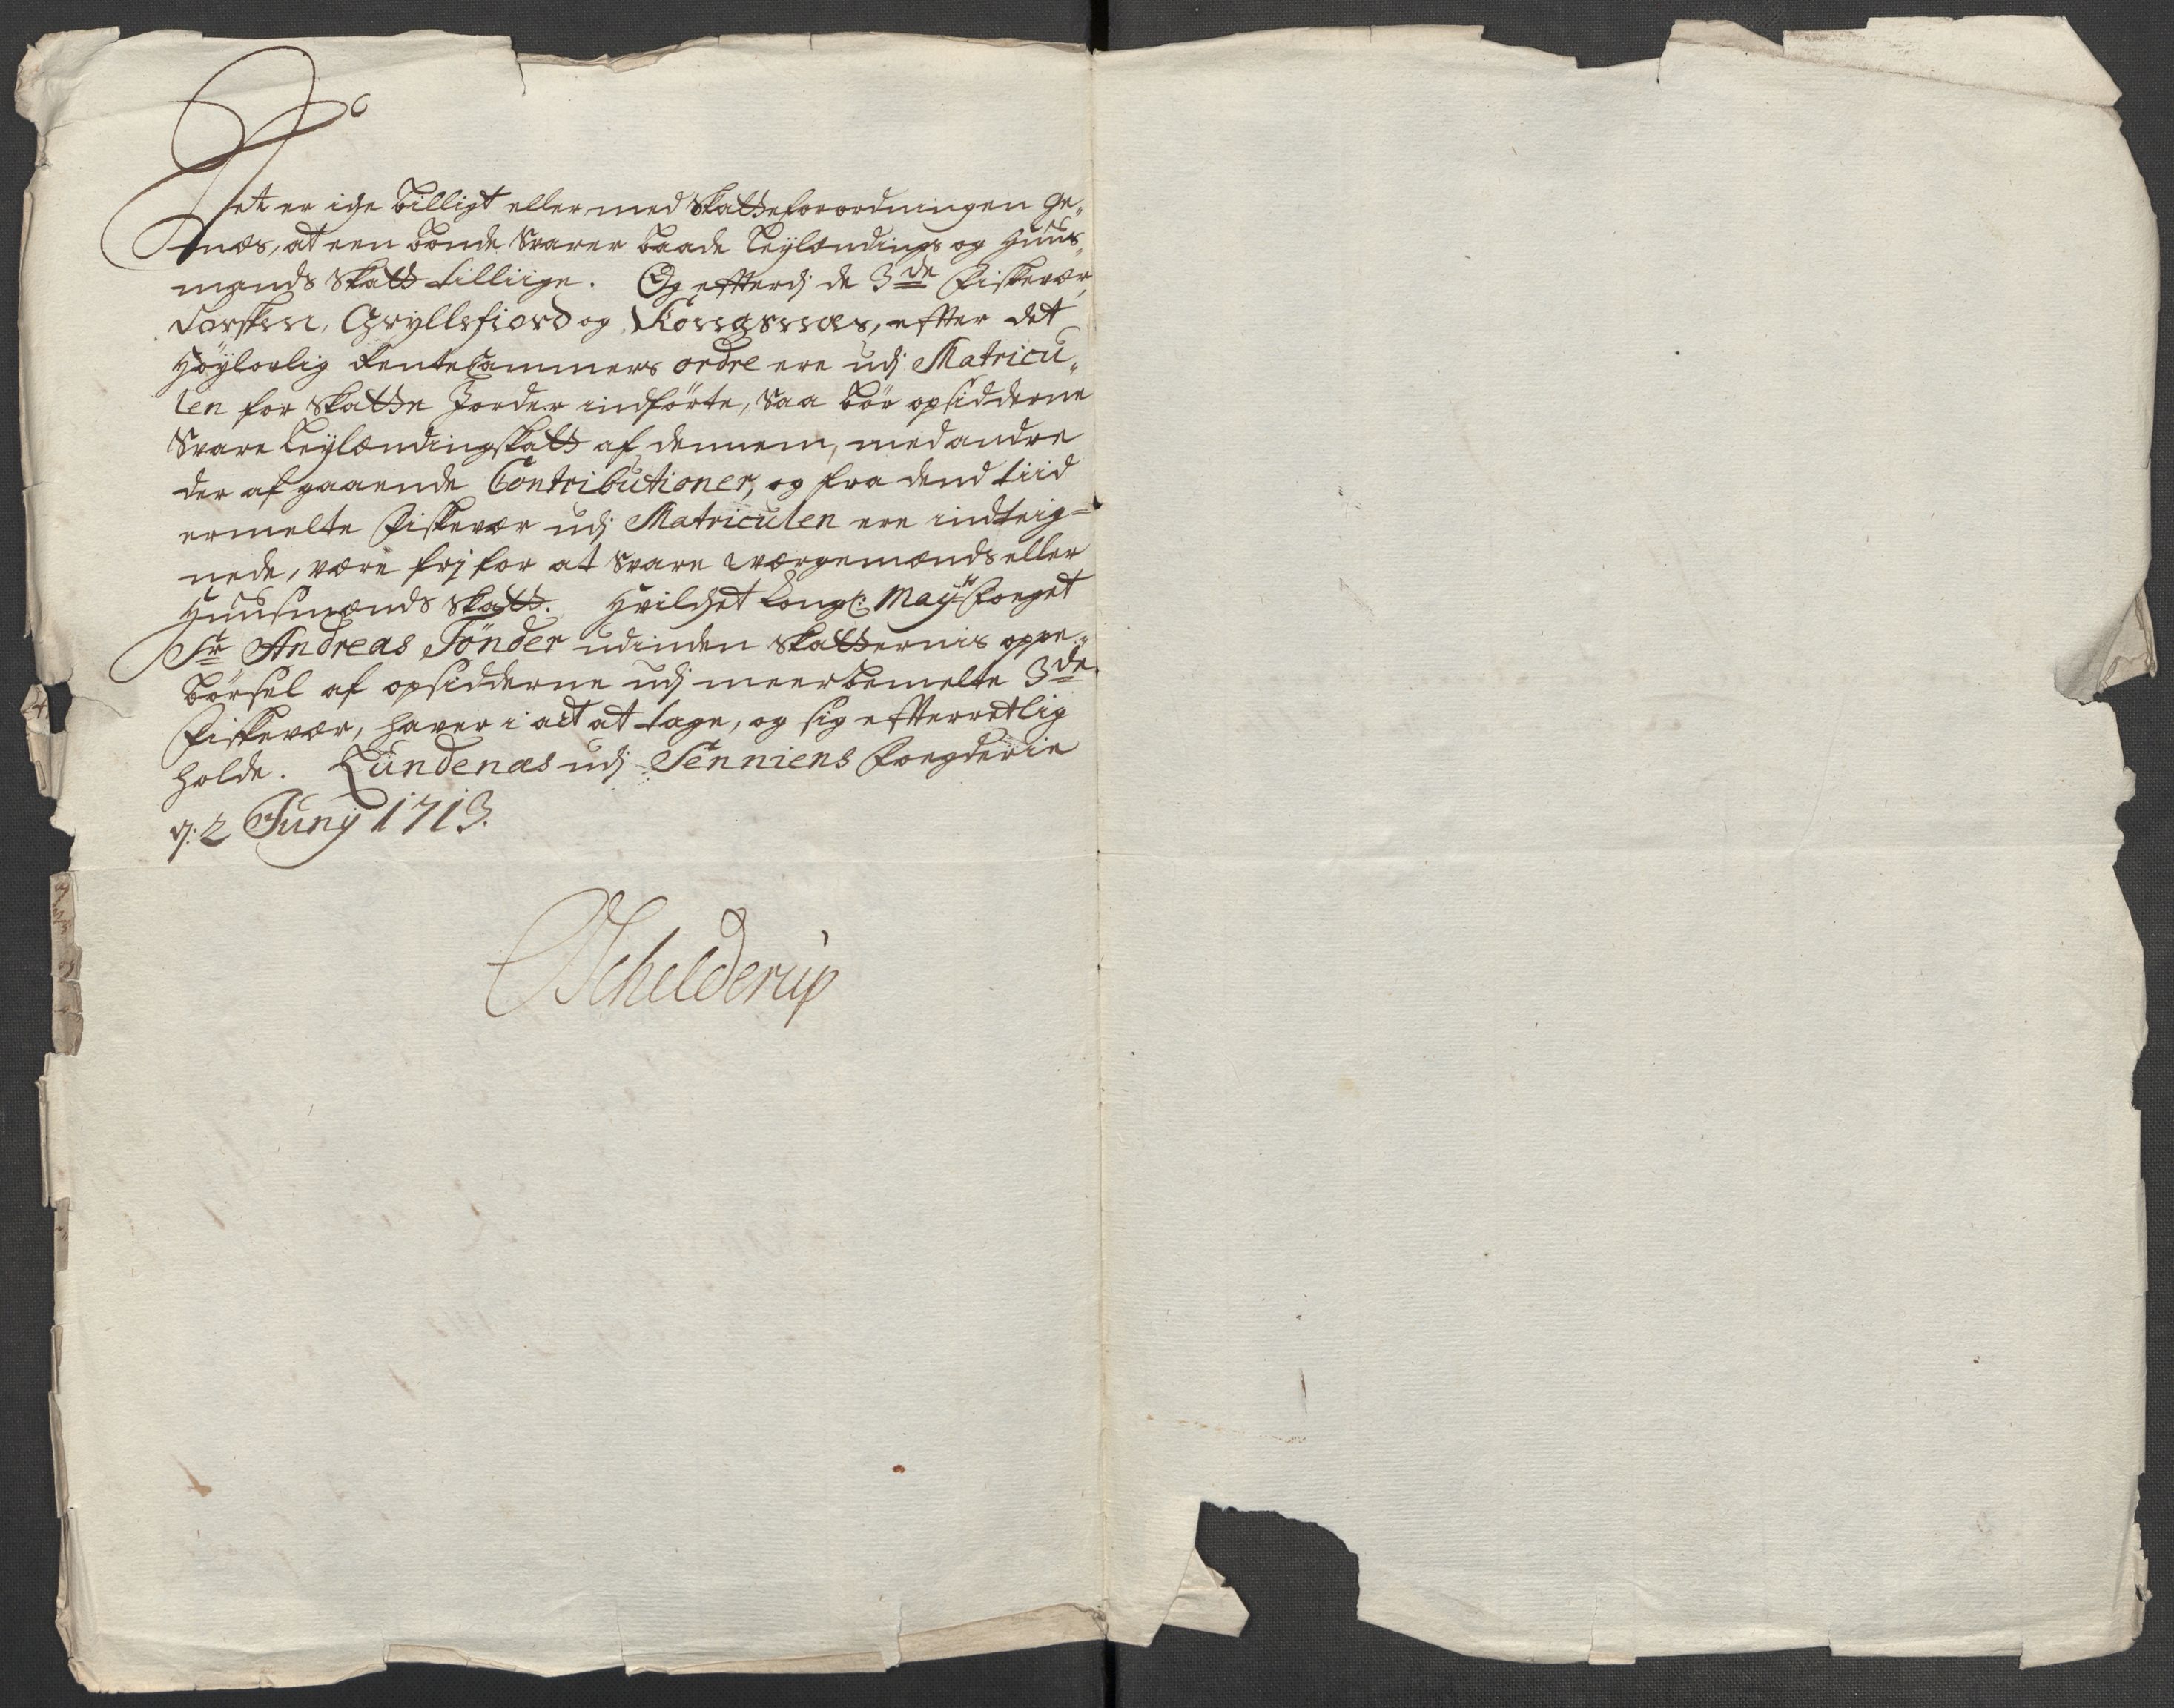 Det er iche billigt eller med Skatteforordningen ge„
mæs, at een bonde Svarer baade Leylændings og Huus„
mands Skatt tilliige. Og efterdj de 3de Fiskevær,
Torsken, Gryllefiord og Kongsnæs, efter det
Høylovlig RenteCammers ordre ere udj Matricu„
len for Skatte Jorder indførte, Saa bør opsidderne
Svare Leylændingskatt af dennem, med andre
der af gaaende Contributioner, og fra dend tiid
ermelte Fiskevær udj Matriculen ere indteig=
nede, være frj for at Svare Værgemænds eller
Huusmænds Skatt. Hvilchet Kongl: Mayts Foeget
Sr Andreas Tönder udinden Skatternis oppe„
børsel af opsidderne udj meerbemelte 3de
Fiskevær, haver i act at tage, og sig efterretlig
holde. Lundenæs udj Senniens Foegderie
d: 2 Junÿ 1713.
Schelderup